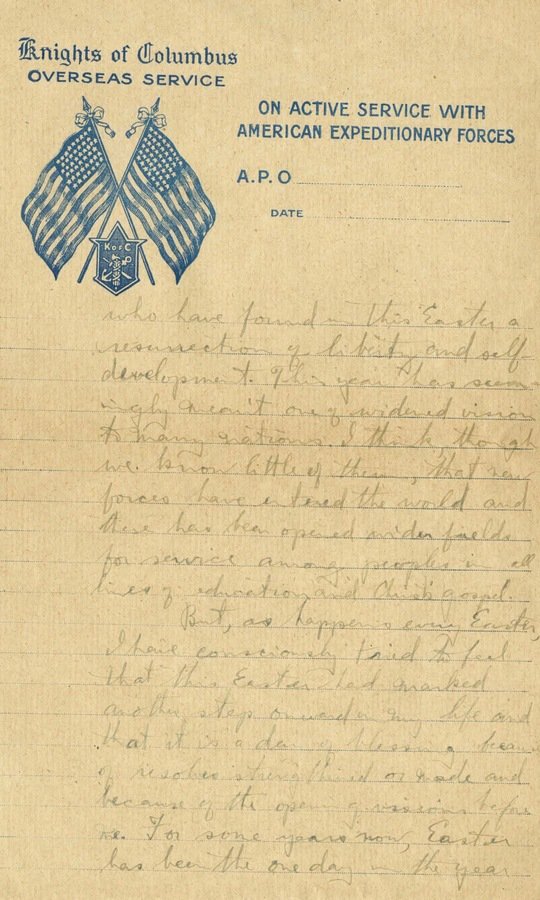 Knights of Columbus
OVERSEAS SERVICE
ON ACTIVE SERVICE WITH
AMERICAN EXPEDITIONARY FORCES
A.P.O
DATE
K of C
who have found in this Easter a
resurrection of liberty and self-
development. This year has seem-
ingly meant one of widened vision
to many nations. I think, though
we know little of them, that new
forces have entered the world and
there has been opened wider fields
for service among peoples in all
lines of education and Christ's gospel.
But, as happens every Easter,
I have consciously tried to feel
that this Easter had marked
another step onward in my life and
that it is a day of blessing because
of resolves strengthened or made and
because of the opening visions before
me. For some years now, Easter
has been the one day in the year